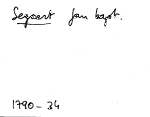 Segaert Jan bapt.
1790-34